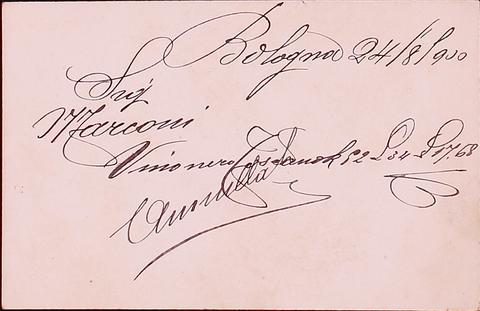 Bologna 24/8/900
Sig
Marconi
Vino nero Toscano L 52 L 34 L 17.68
Annulla